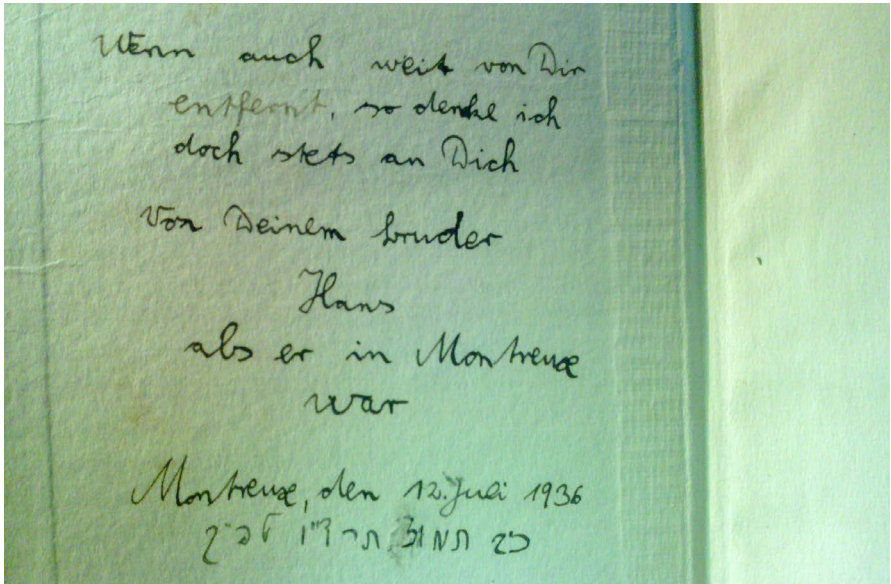 Wenn auch weit von Dir
entfernt, so denke ich
doch stets an Dich
Von Deinem bruder
Hans
als er in Montreux
war
Montreux, den 12. Juli 1936
כב תמוז, תרצ"ו לפ"ק